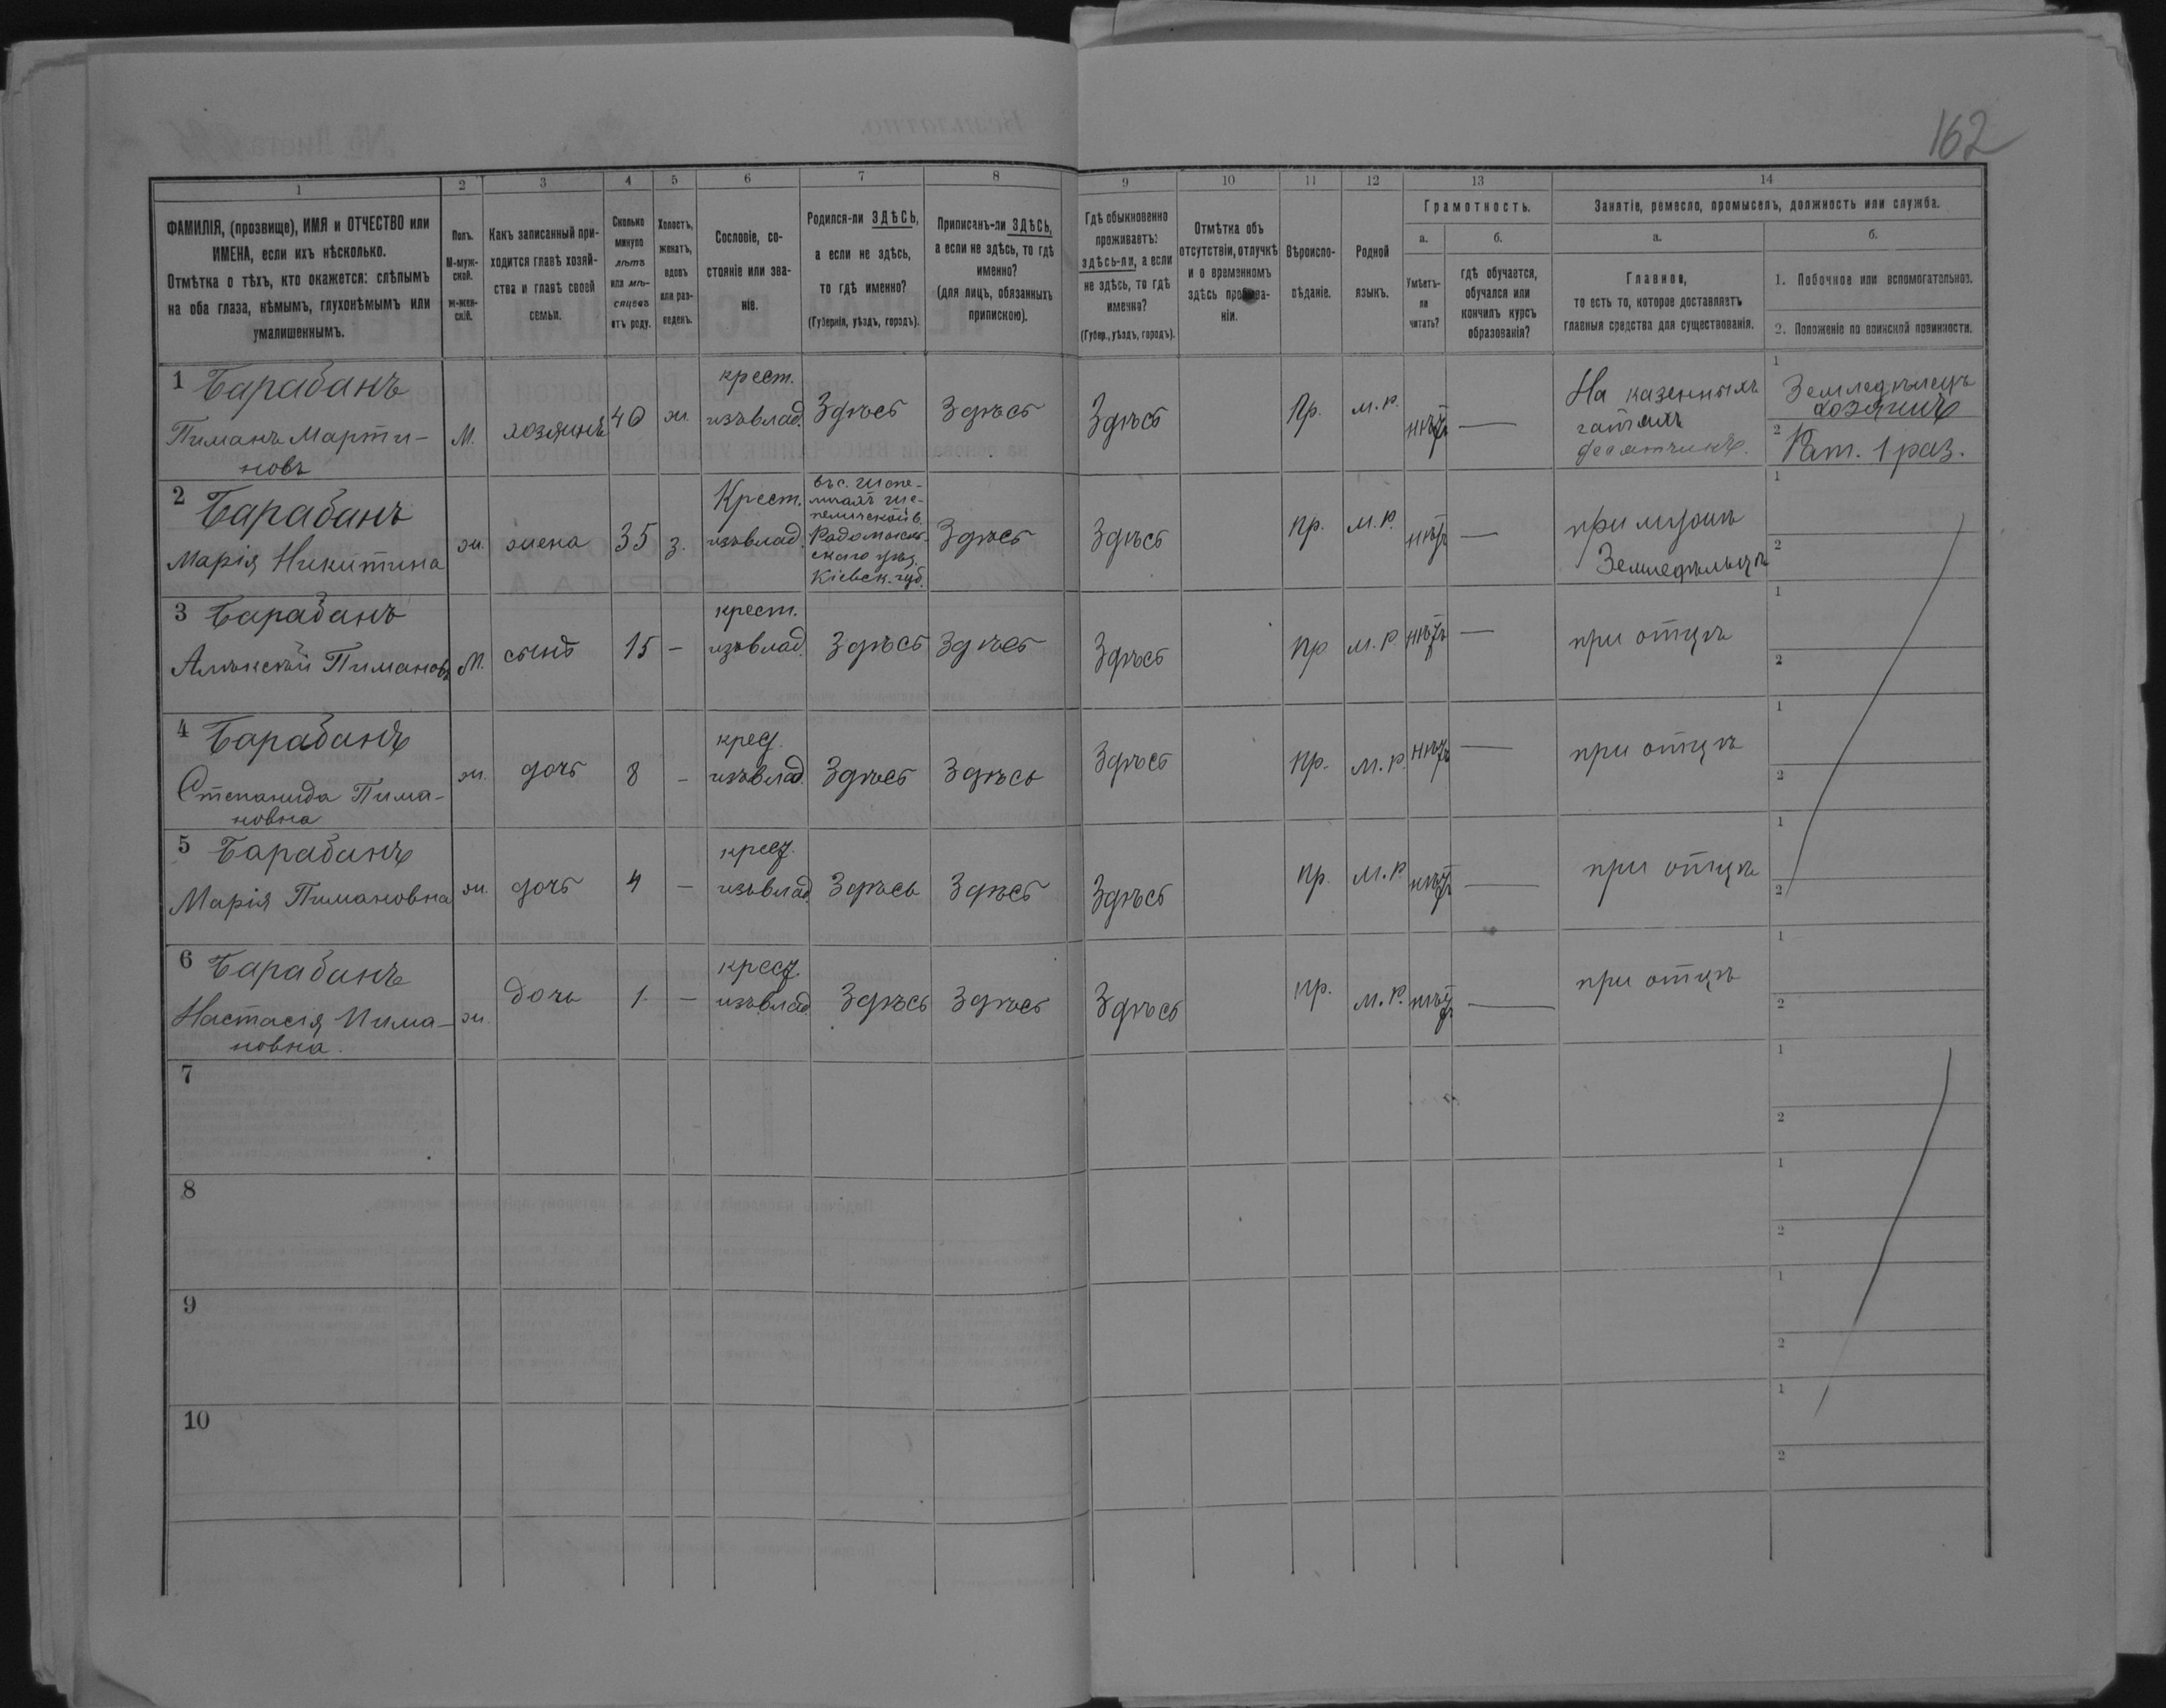 162
1 2 3 4 5 6 7 8 9 10 11 12 13 14
ФАМИЛІЯ, (прозвище), ИМЯ и ОТЧЕСТВО или
ИМЕНА, если ихъ нѣсколько.
Отмѣтка о тѣхъ, кто окажется: слѣпымъ
на оба глаза, нѣмымъ, глухонѣмымъ или
умалишеннымъ.
Полъ.
М-муж-
ской.
ж-жен-
скій.
Какъ записанный при-
ходится главѣ хозяй-
ства и главѣ своей
семьи.
Сколько
минуло
лѣтъ
или мѣ-
сяцевъ
отъ роду.
Холостъ,
женатъ,
вдовъ
или раз-
веденъ.
Сословіе, со-
стояніе или зва-
ніе.
Родился-ли ЗДѢСЬ,
а если не здѣсь,
то гдѣ именно?
(Губернія, уѣздъ, городъ).
Приписанъ-ли ЗДѢСЬ,
а если не здѣсь, то гдѣ
именно?
(для лицъ, обязанныхъ
припискою).
Гдѣ обыкновенно
проживаетъ:
здѣсь-ли, а если
не здѣсь, то гдѣ
именно?
(Губер., уѣздъ, городъ).
Отмѣтка объ
отсутствіи, отлучкѣ
и о временномъ
здѣсь прожива-
ніи.
Вѣроиспо-
вѣданіе.
Родной
языкъ.
Грамотность.
а.
Умѣетъ-
ли
читать?
б.
гдѣ обучается,
обучался или
кончилъ курсъ
образованія?
Занятіе, ремесло, промыселъ, должность или служба.
а.
Главное,
то есть то, которое доставляетъ
главныя средства для существованія.
б.
1. Побочное или вспомогательное.
2. Положеніе по воинской повинности.
1 Барабанъ
Пиманъ Марти-
новъ
М.
хозяинъ
40
ж.
крест.
изъ влад.
Здѣсь
Здѣсь
Здѣсь
Пр.
м.р.
нѣтъ
—
На казенныхъ
десятникъ.
1
Земледѣлецъ
хозяинъ
2
Рат. 1 раз.
2 Барабанъ
Марія Никитина
ж.
жена
35
з.
Крест.
изъ влад.
Радомысль-
скаго уѣз.
Кіевск. губ.
Здѣсь
Здѣсь
пр.
м.р.
нѣтъ
—
при мужѣ
Земледѣльцѣ
1
2
3 Барабанъ
Алѣксѣй Пимановъ
М.
сынъ
15
—
крест.
изъ влад.
Здѣсь
Здѣсь
Здѣсь
пр
м.р.
нѣтъ
—
при отцѣ
1
2
4 Барабанъ
Степанида Пима-
новна
ж.
дочь
8
—
крест.
изъ влад.
Здѣсь
Здѣсь
Здѣсь
пр.
м.р.
нѣтъ
—
при отцѣ
1
2
5 Барабанъ
Марія Пимановна
ж.
дочь
4
—
крест.
изъ влад.
Здѣсь
Здѣсь
Здѣсь
пр.
м.р.
нѣтъ
—
при отцѣ
1
2
6 Барабанъ
Настасія Пима-
новна.
ж.
дочь
1.
—
крест.
изъ влад.
Здѣсь
Здѣсь
Здѣсь
пр.
м.р.
нѣтъ
—
при отцѣ
1
2
7
1
2
8
1
2
9
1
2
10
1
2